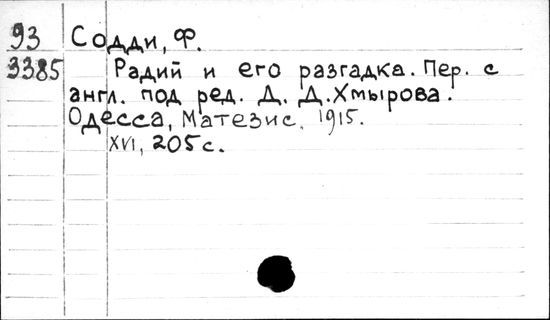 93 Содди, Ф.
3385 Радий и его разгадка. Пер. с
англ. под ред. Д. Д. Хмырова.
Одесса, Матезис, 1915.
XVI, 205 с.